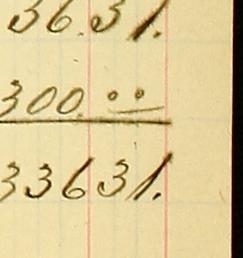 3631.
300.00
33631.